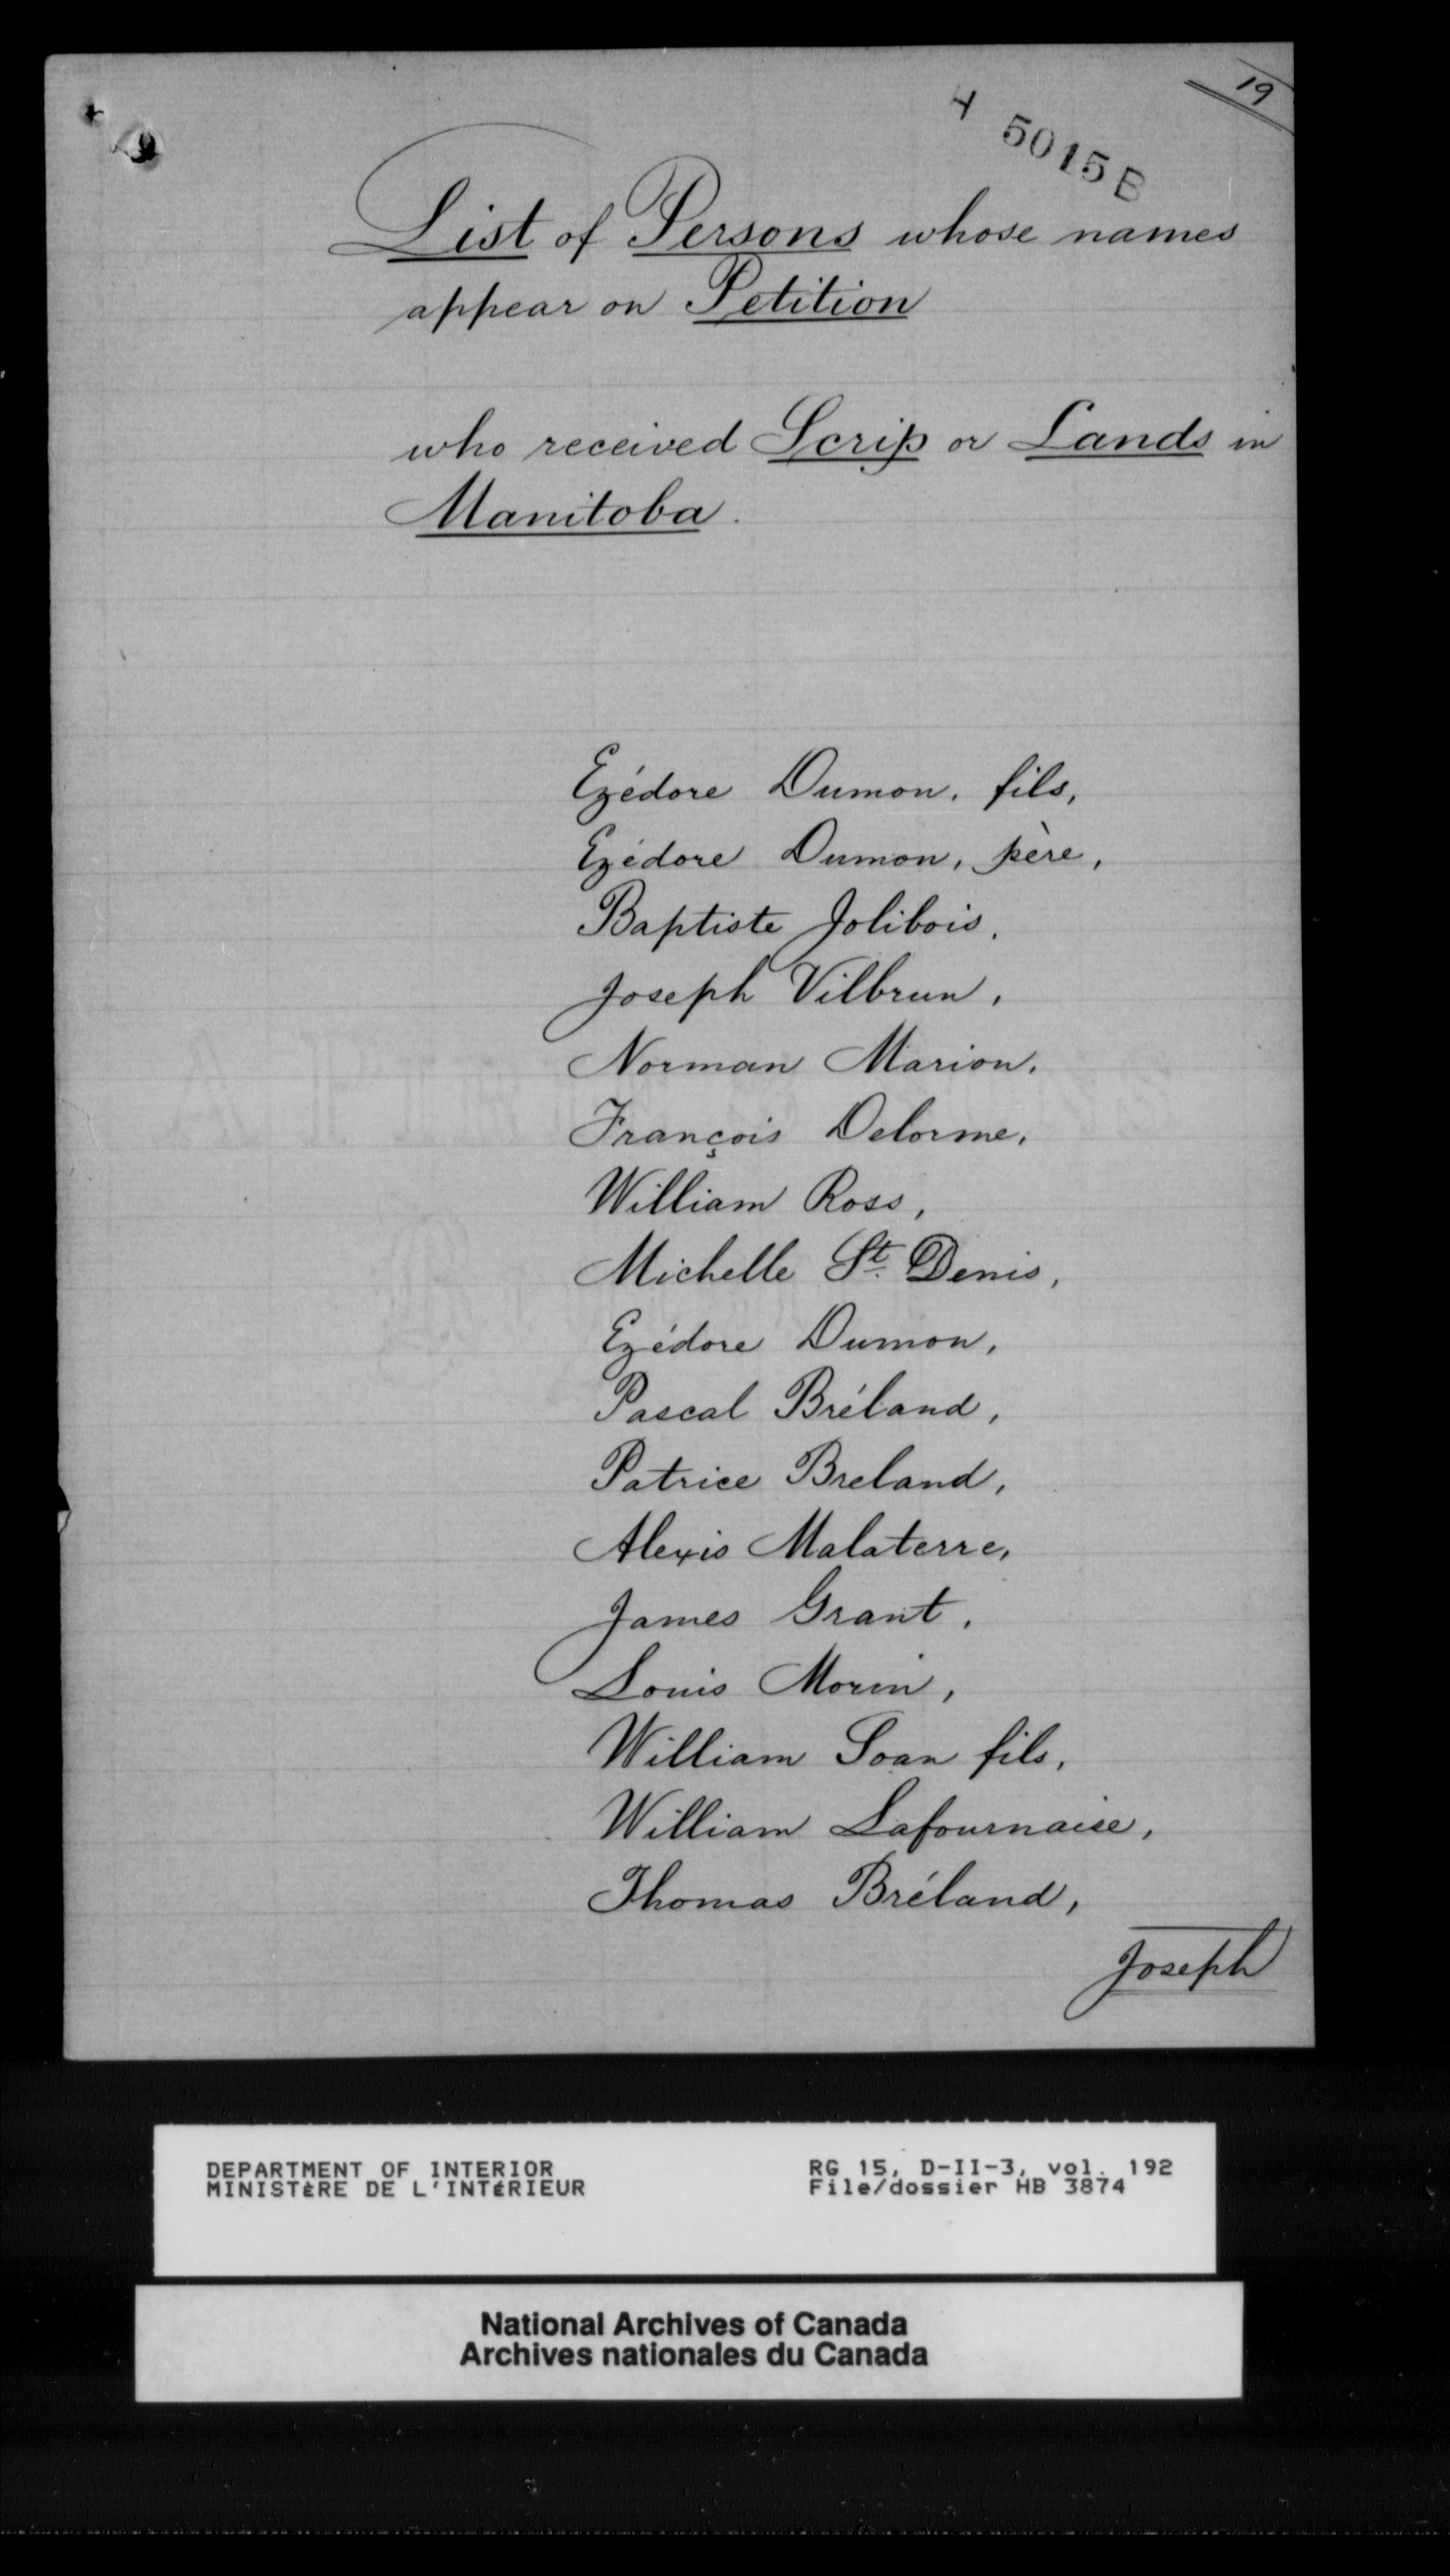 19
5015 B
List of Persons whose names
appear on Petition
who received Scrip or Lands in
Manitoba.
Ezédore Dumon, fils,
Ezédore Dumon, père,
Baptiste Jolibois,
Joseph Vilbrun,
Norman Marion,
François Delorme,
William Ross,
Michelle St. Denis,
Ezédore Dumon,
Pascal Bréland,
Patrice Breland,
Alexis Malaterre,
James Grant,
Louis Morin,
William Soan fils,
William Lafournaise,
Thomas Bréland,
Joseph
DEPARTMENT OF INTERIOR
MINISTÈRE DE L'INTÉRIEUR
RG 15, D-II-3, vol. 192
File/dossier HB 3874
National Archives of Canada
Archives nationales du Canada